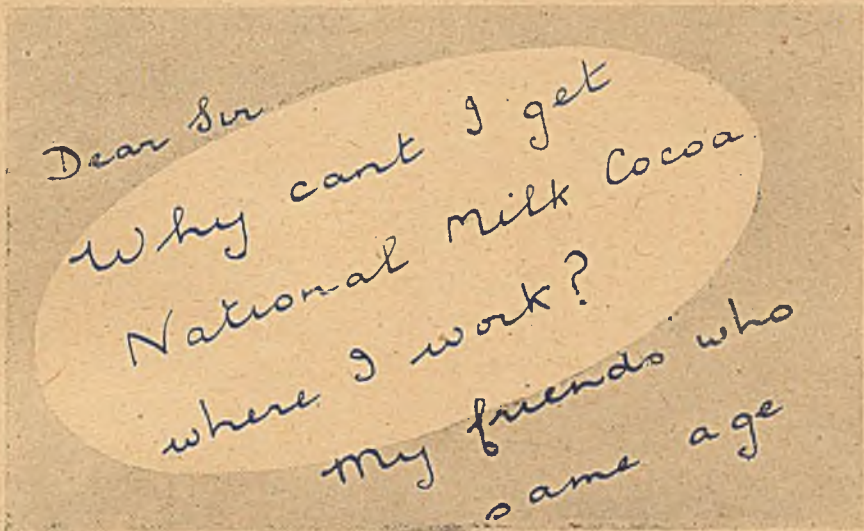 Dear Sir
Why cant I get
National Milk Cocoa
where I work?
My friends who
same age